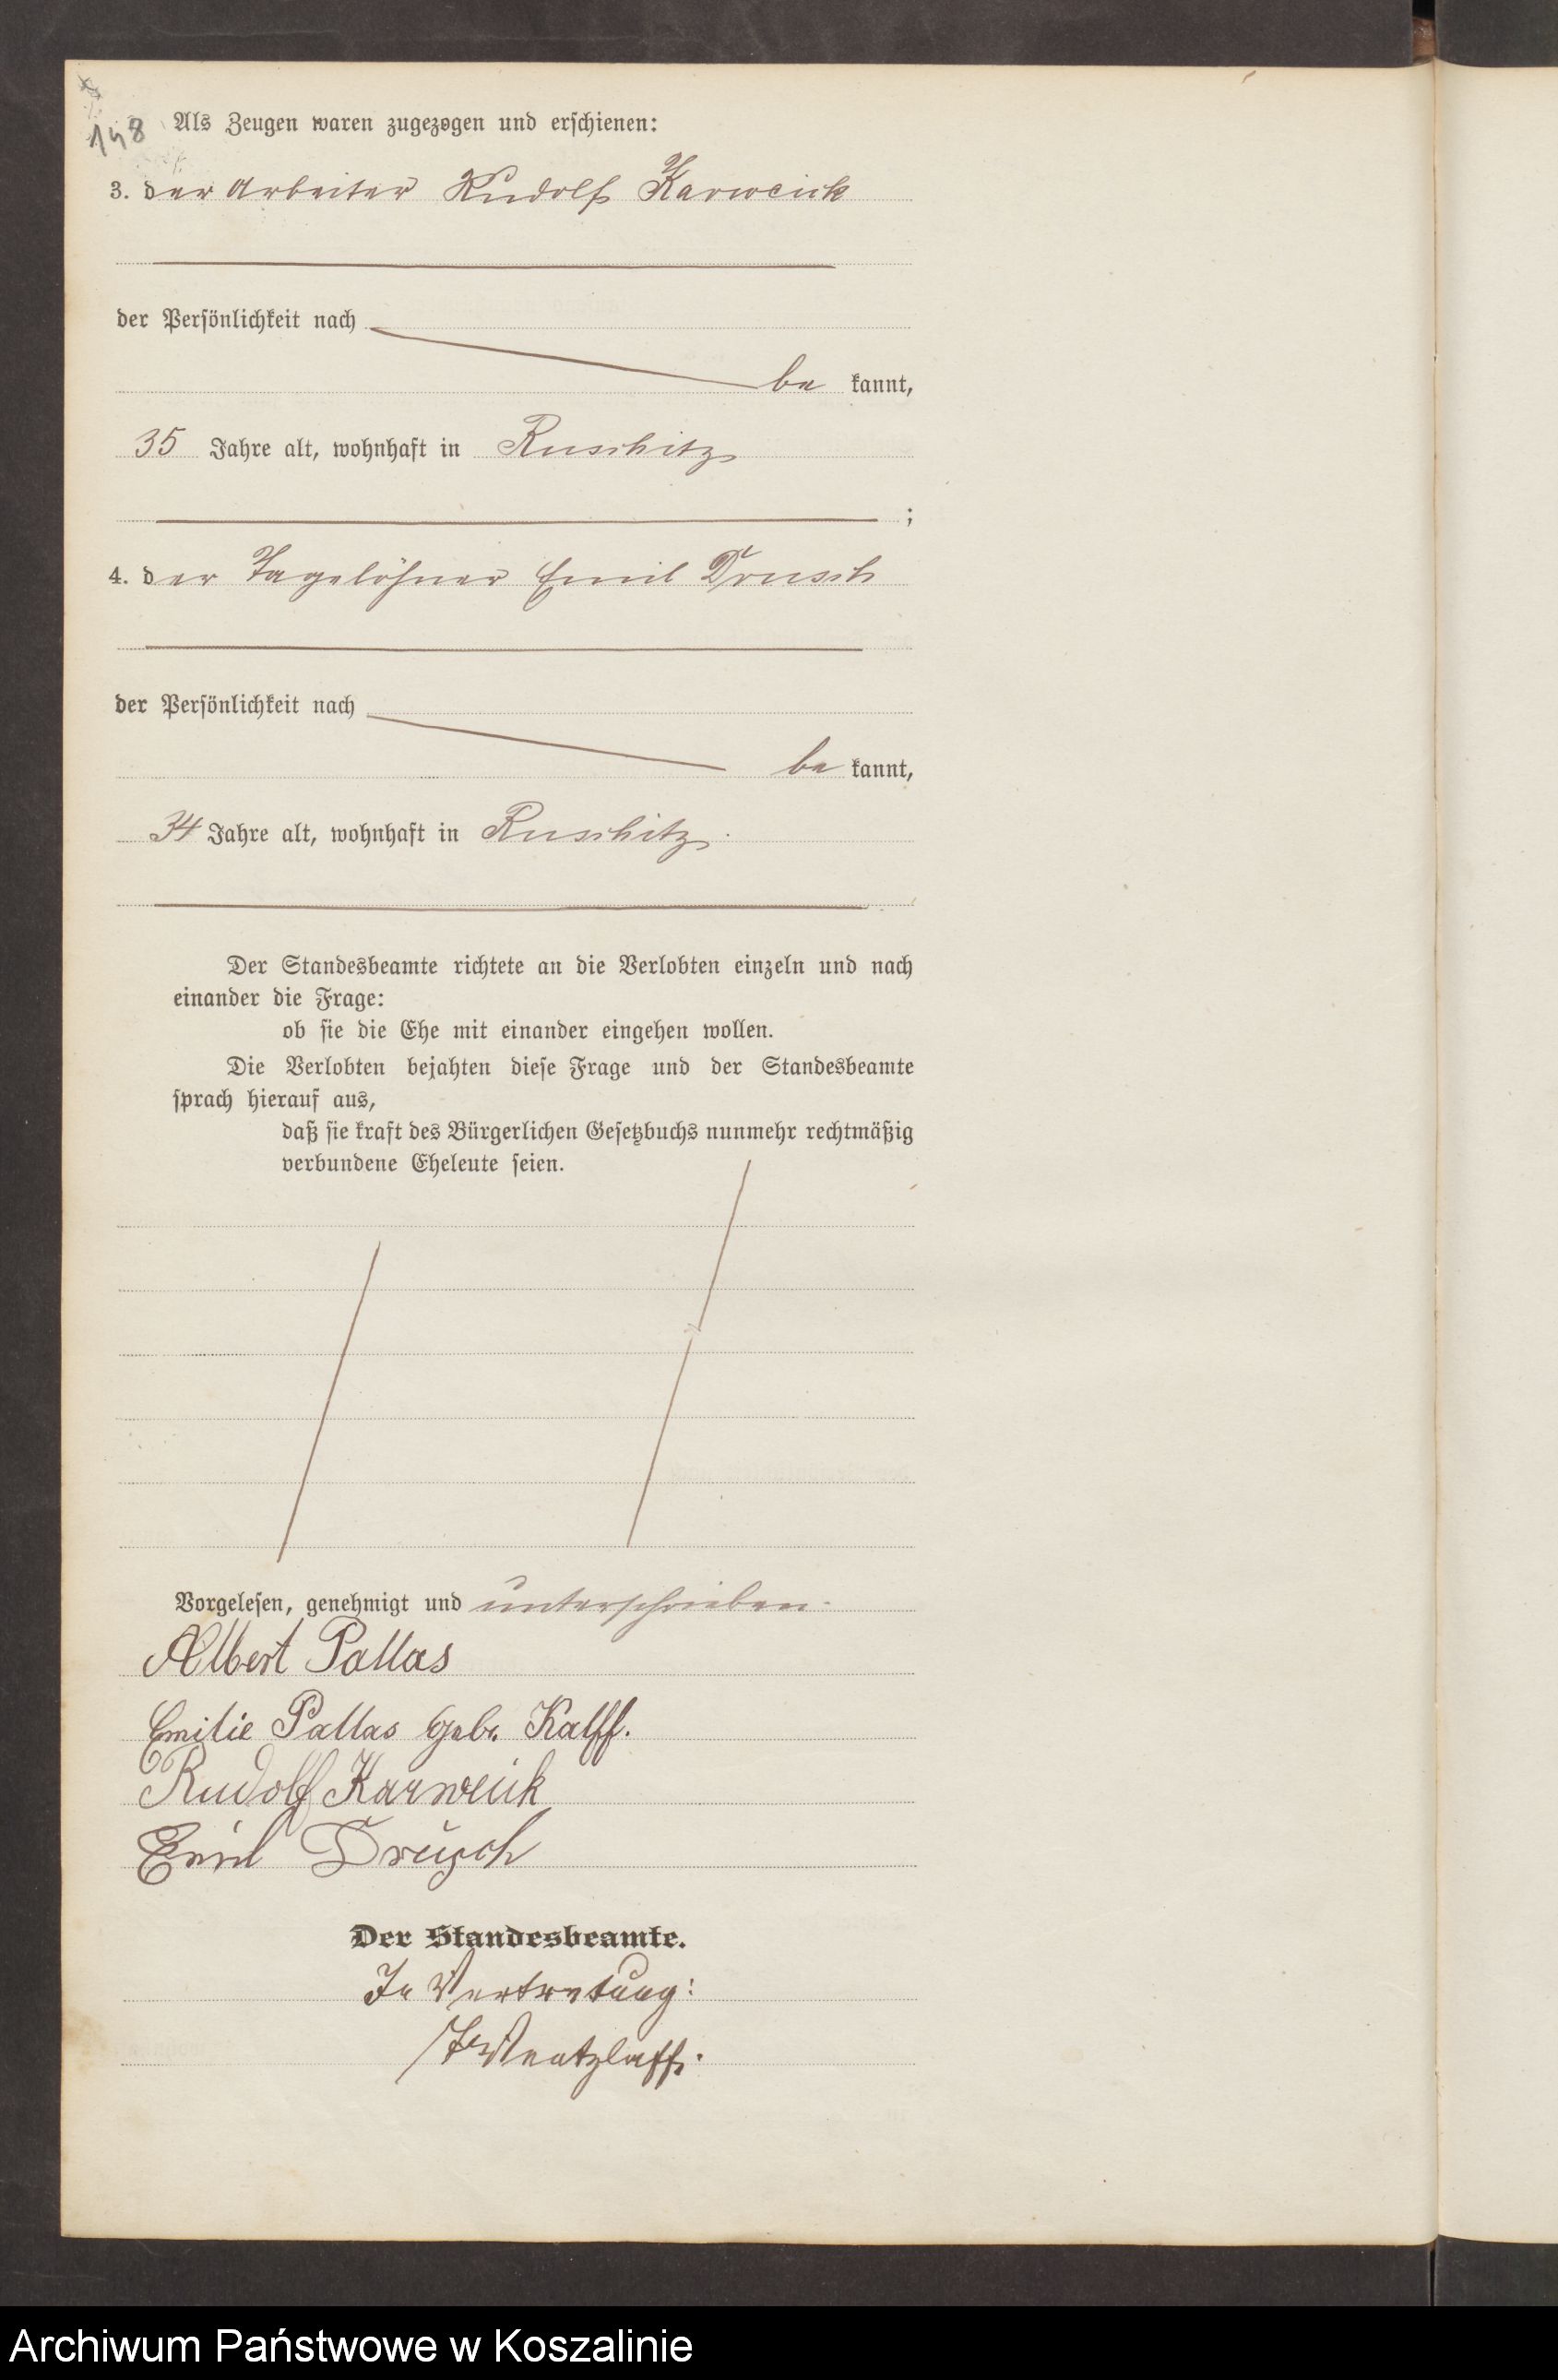 148 Als Zeugen waren zugezogen und erschienen:
3. der Arbeiter Rudolf Karweick
der Persönlichkeit nach
be kannt,
35 Jahre alt, wohnhaft in Ruschitz
;
4. der Tagelöhner Emil Drusch
der Persönlichkeit nach
be kannt,
34 Jahre alt, wohnhaft in Ruschitz.
Der Standesbeamte richtete an die Verlobten einzeln und nach
einander die Frage:
ob sie die Ehe mit einander eingehen wollen.
Die Verlobten bejahten diese Frage und der Standesbeamte
sprach hierauf aus,
daß sie kraft des Bürgerlichen Gesetzbuchs nunmehr rechtmäßig
verbundene Eheleute seien.
Vorgelesen, genehmigt und unterschrieben.
Albert Pallas
Emilie Pallas geb. Kalff.
Rudolf Karweick
Emil Drusch
Der Standesbeamte.
In Vertretung:
Wentzlaff.
Archiwum Państwowe w Koszalinie